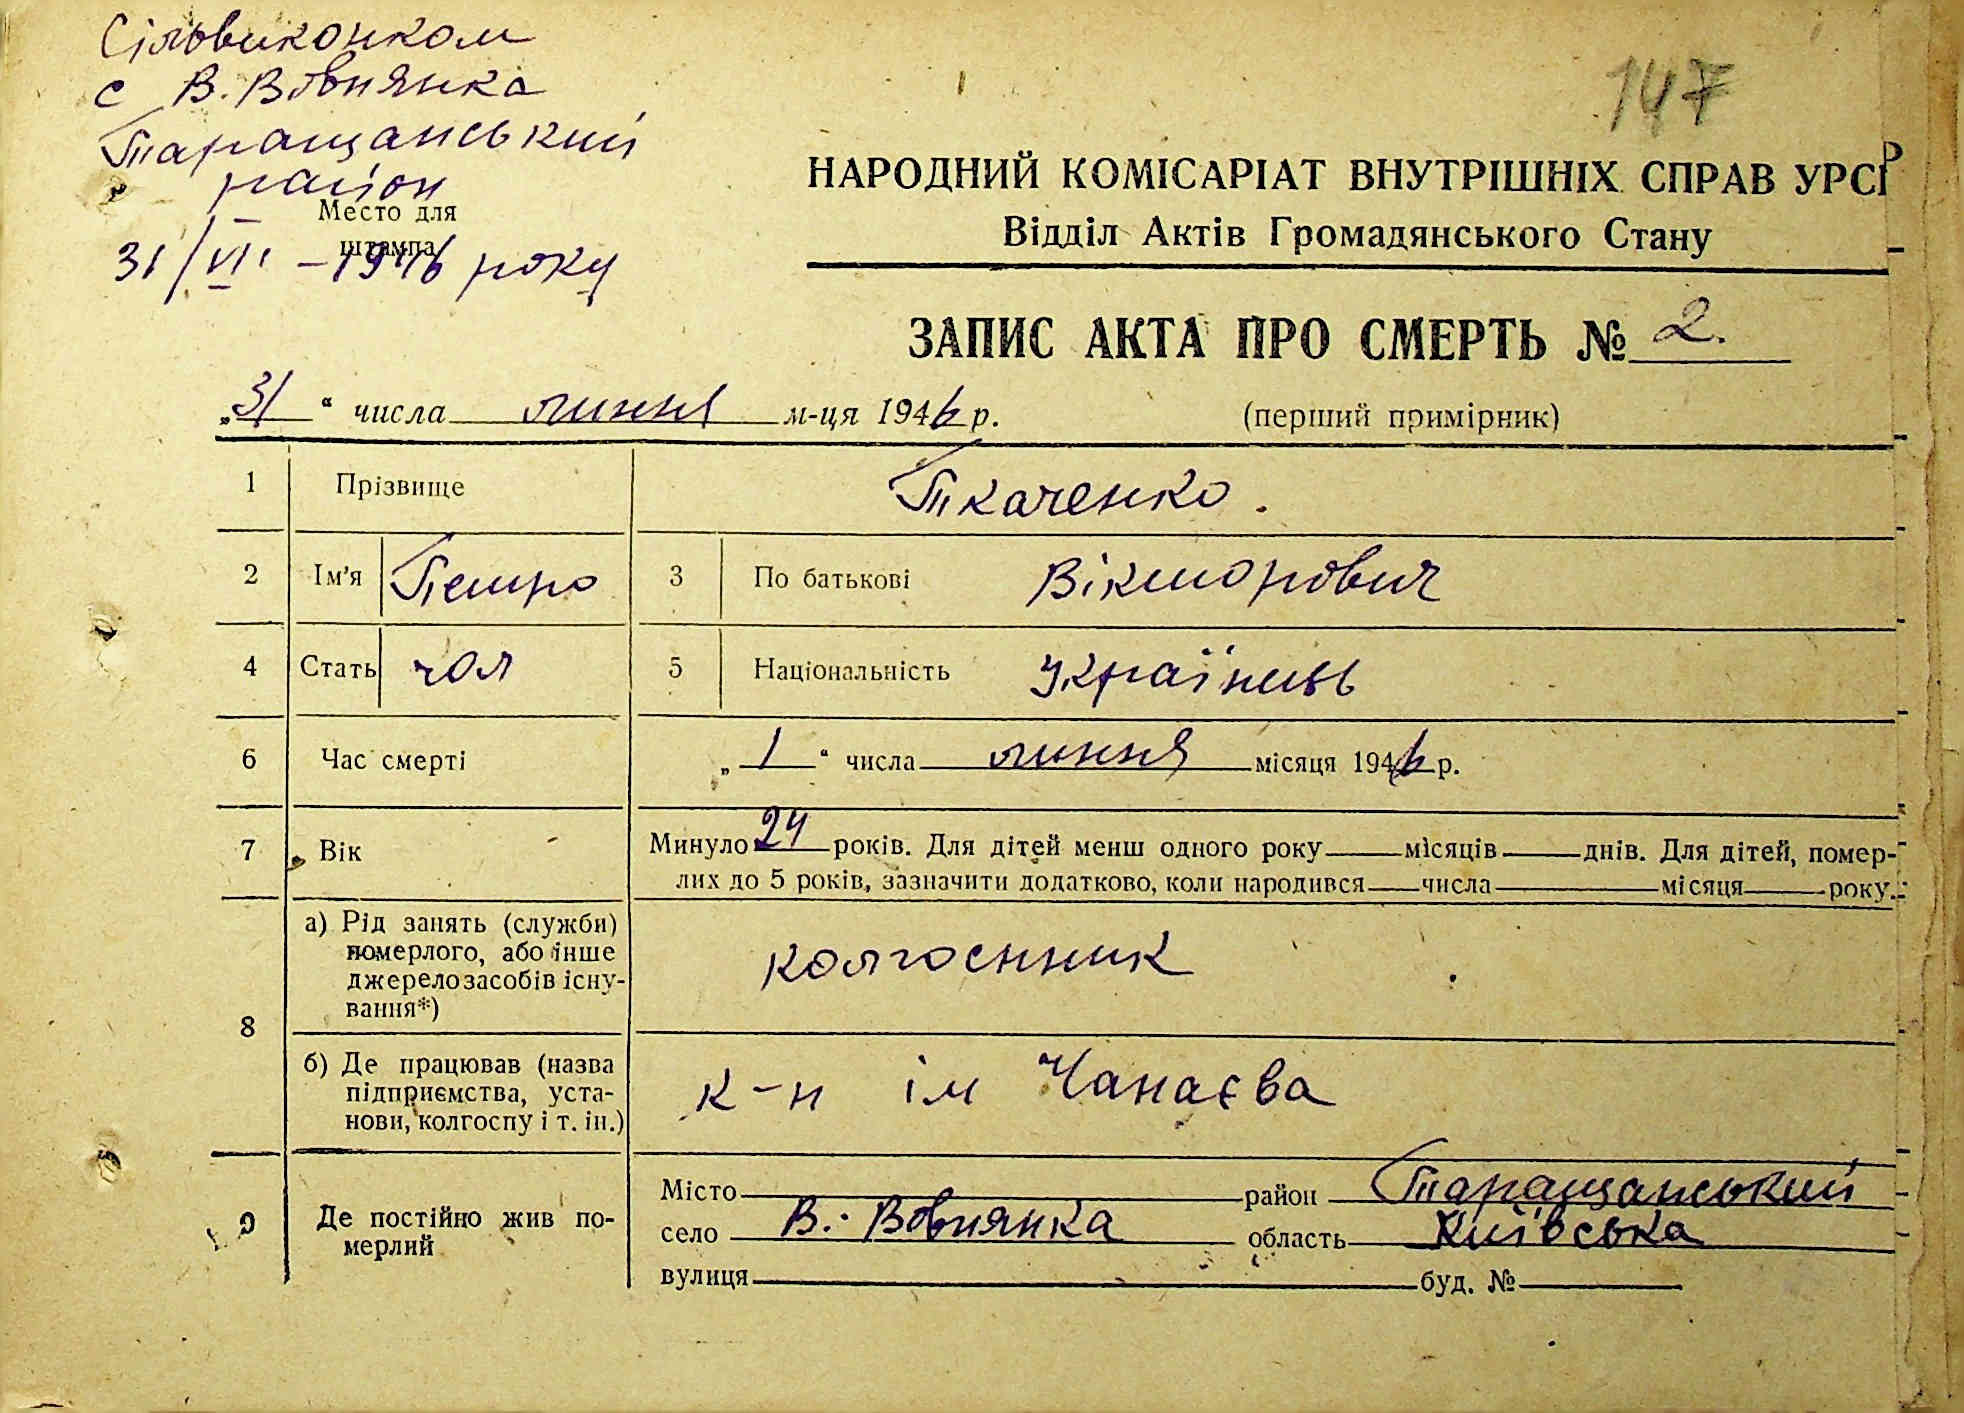 Сільвиконком
с В. Вовнянка
Таращанський
район
Место для
штампа
31/VII - 1946 року
147
НАРОДНИЙ КОМІСАРІАТ ВНУТРІШНІХ СПРАВ УРСР
Відділ Актів Громадянського Стану
ЗАПИС АКТА ПРО СМЕРТЬ № 2.
„31“ числа липня м-ця 1946 р.
(перший примірник)
1 Прізвище Ткаченко.
2 Ім'я Петро 3 По батькові Вікторович
4 Стать чол 5 Національність Українець
6 Час смерті „1“ числа липня місяця 1946 р.
7 Вік Минуло 24 років. Для дітей менш одного року місяців днів. Для дітей, помер-
лих до 5 років, зазначити додатково, коли народився числа місяця року.
8
а) Рід занять (служби)
померлого, або інше
джерело засобів існу-
вання*)
колгоспник
б) Де працював (назва
підприємства, уста-
нови, колгоспу і т. ін.)
к-п ім Чапаєва
9 Де постійно жив по-
мерлий
Місто район Таращанський
село В. Вовнянка область Київська
вулиця буд. №